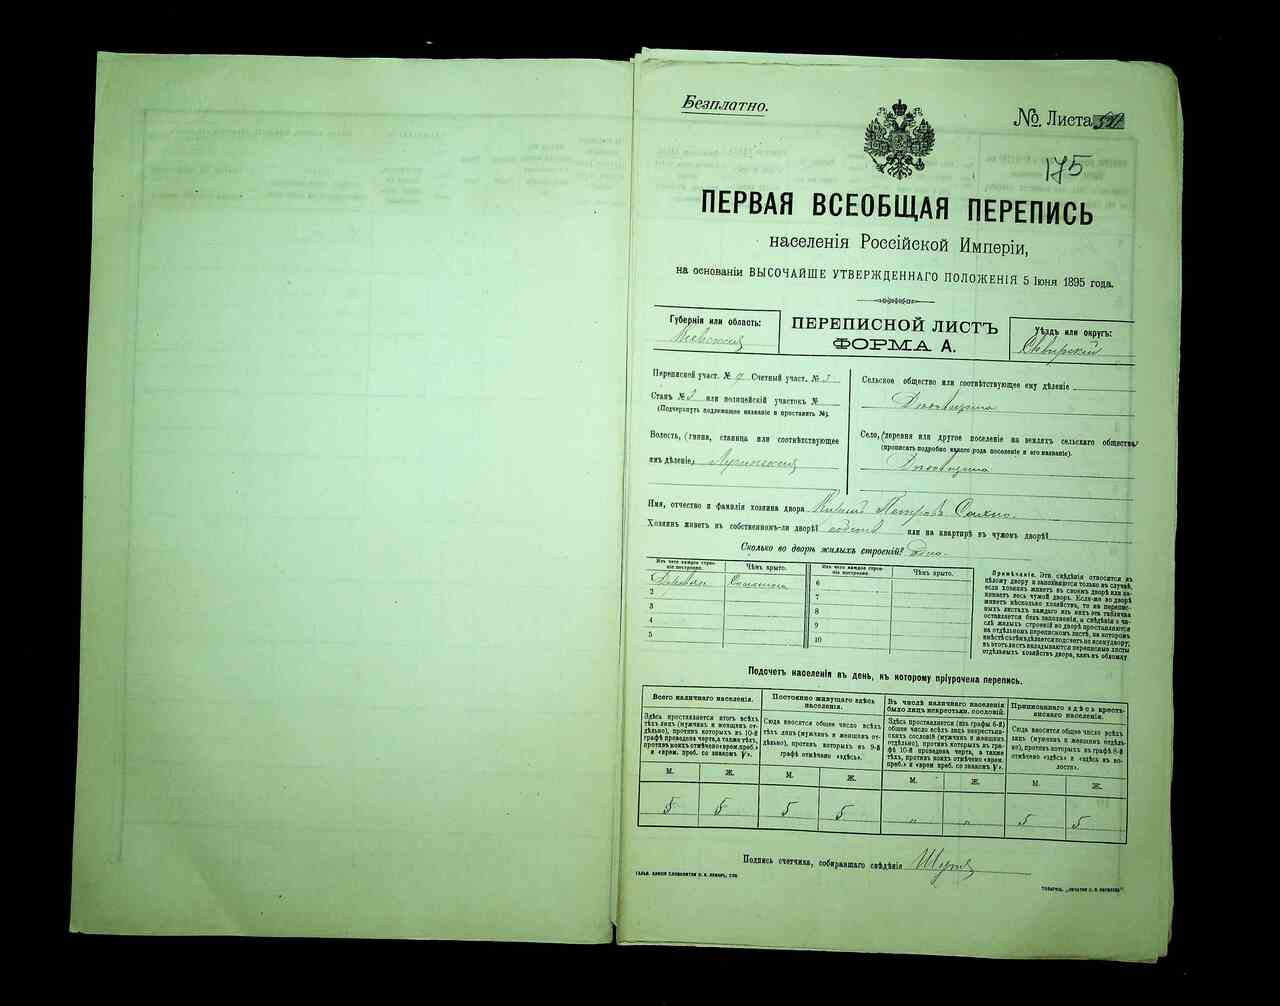 Безплатно.
№ Листа
175
ПЕРВАЯ ВСЕОБЩАЯ ПЕРЕПИСЬ
населенія Россійской Имперіи,
на основаніи ВЫСОЧАЙШЕ УТВЕРЖДЕННАГО ПОЛОЖЕНІЯ 5 Іюня 1895 года.
Губернія или область:
Кіевская
ПЕРЕПИСНОЙ ЛИСТЪ
ФОРМА А.
Уѣздъ или округъ:
Сквирскій
Переписной участ. № Счетный участ. № 3
Станъ № или полицейскій участокъ №
(Подчеркнуть подлежащее названіе и проставить №).
Волость, (гмина, станица или соотвѣтствующее
имъ дѣленіе)
Сельское общество или соотвѣтствующее ему дѣленіе
Село, (деревня или другое поселеніе на земляхъ сельскаго общества
(прописать подробно какого рода поселеніе и его названіе).
Имя, отчество и фамилія хозяина двора Петровъ Сахно.
Хозяинъ живетъ въ собственномъ-ли дворѣ? или на квартирѣ въ чужомъ дворѣ?
Сколько во дворѣ жилыхъ строеній? одно.
Изъ чего каждое строеніе построено. Чѣмъ крыто. Изъ чего каждое строеніе построено. Чѣмъ крыто.
Соломою 6
2 7
3 8
4 9
5 10
Примѣчаніе. Эти свѣдѣнія относятся къ
цѣлому двору и заполняются только въ случаѣ,
если хозяинъ живетъ въ своемъ дворѣ или занимаетъ весь чужой дворъ. Если-же во дворѣ
живетъ нѣсколько хозяйствъ, то на переписныхъ листахъ каждаго изъ нихъ эта табличка
оставляется безъ заполненія, а свѣдѣнія о числѣ жилыхъ строеній во дворѣ проставляются
на отдѣльномъ переписномъ листѣ, на которомъ
вмѣстѣ съ тѣмъ дѣлается подсчетъ по всему двору;
въ этотъ листъ вкладываются переписные листы
отдѣльныхъ хозяйствъ двора, какъ въ обложку
Подсчетъ населенія въ день, къ которому пріурочена перепись.
Всего наличнаго населенія.
Здѣсь проставляется итогъ всѣхъ
лицъ (мужчинъ и женщинъ отдѣльно), противъ которыхъ въ 10-й
графѣ проведена черта, а также тѣхъ,
противъ коихъ отмѣчено «врем. преб.»
и «врем. преб. со знакомъ V».
Постоянно живущаго здѣсь
населенія.
Сюда вносится общее число всѣхъ
тѣхъ лицъ (мужчинъ и женщинъ отдѣльно), противъ которыхъ въ 9-й
графѣ отмѣчено «здѣсь».
Въ числѣ наличнаго населенія
было лицъ некрестьян. сословій.
Здѣсь проставляется (изъ графы 6-й)
общее число всѣхъ лицъ некрестьянскихъ сословій (мужчинъ и женщинъ
отдѣльно), противъ которыхъ въ графѣ 10-й проведена черта, а также
тѣхъ, противъ коихъ отмѣчено «врем.
преб.» и «врем. преб. со знакомъ V».
Приписаннаго здѣсь крестьянскаго населенія.
Сюда вносится общее число всѣхъ
лицъ (мужчинъ и женщинъ отдѣльно), противъ которыхъ въ графѣ 8-й
отмѣчено «здѣсь» и «здѣсь въ волости».
М. Ж. М. Ж. М. Ж. М. Ж.
5 5 5 5 „ „ 5 5
Подпись счетчика, собиравшаго свѣдѣнія